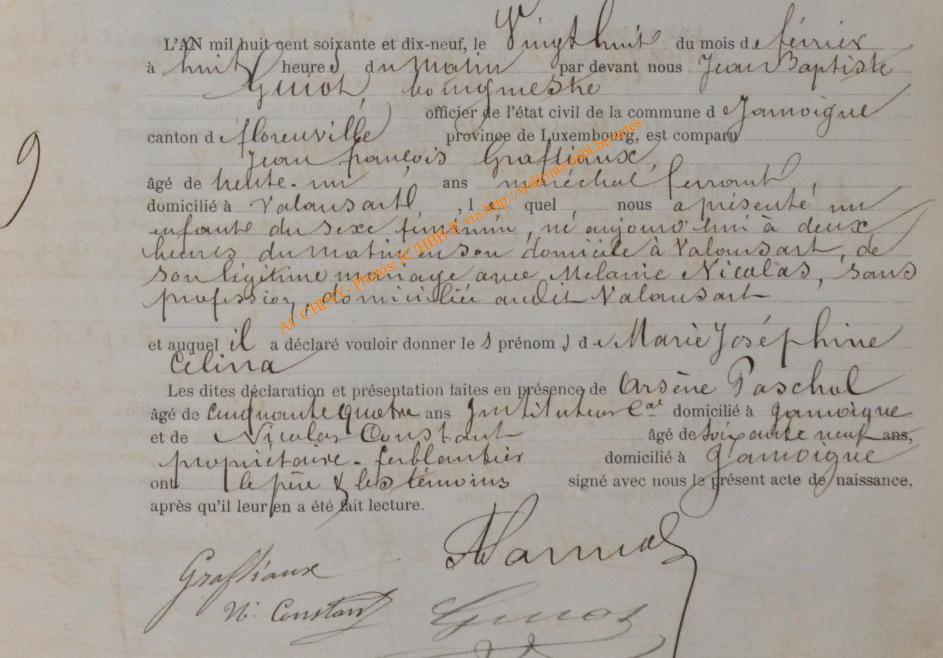 L'AN mil huit cent soixante et dix-neuf, le Vingt huit du mois de février
à huit heures du matin par devant nous Jean Baptiste
Guiot, bourgmestre
officier de l'état civil de la commune d Jamoigue
canton de florenville province de Luxembourg, est comparu
9
Jean françois Graftiaux
âgé de trente-un ans maréchal ferrant,
domicilié à Valansart, le quel nous a présenté un
enfante du sexe féminin, né aujourd'hui à deux
heures du matin en son domicile à Valansart, de
son légitime mariage avec Mélanie Nicolas, sans
profession, domiciliée audit Valansart
et auquel il a déclaré vouloir donner les prénoms de Marie Joséphine
Célina
Les dites déclaration et présentation faites en présence de Arsène Paschal
âgé de cinquante quatre ans Instituteur Cal domicilié à Jamoigue
et de Nicolas Constant âgé de soixante neuf ans,
propriétaire-ferblantier domicilié à Jamoigue
ont le père & les témoins signé avec nous le présent acte de naissance,
après qu'il leur en a été fait lecture.
Graftiaux
N. Constant
Guiot